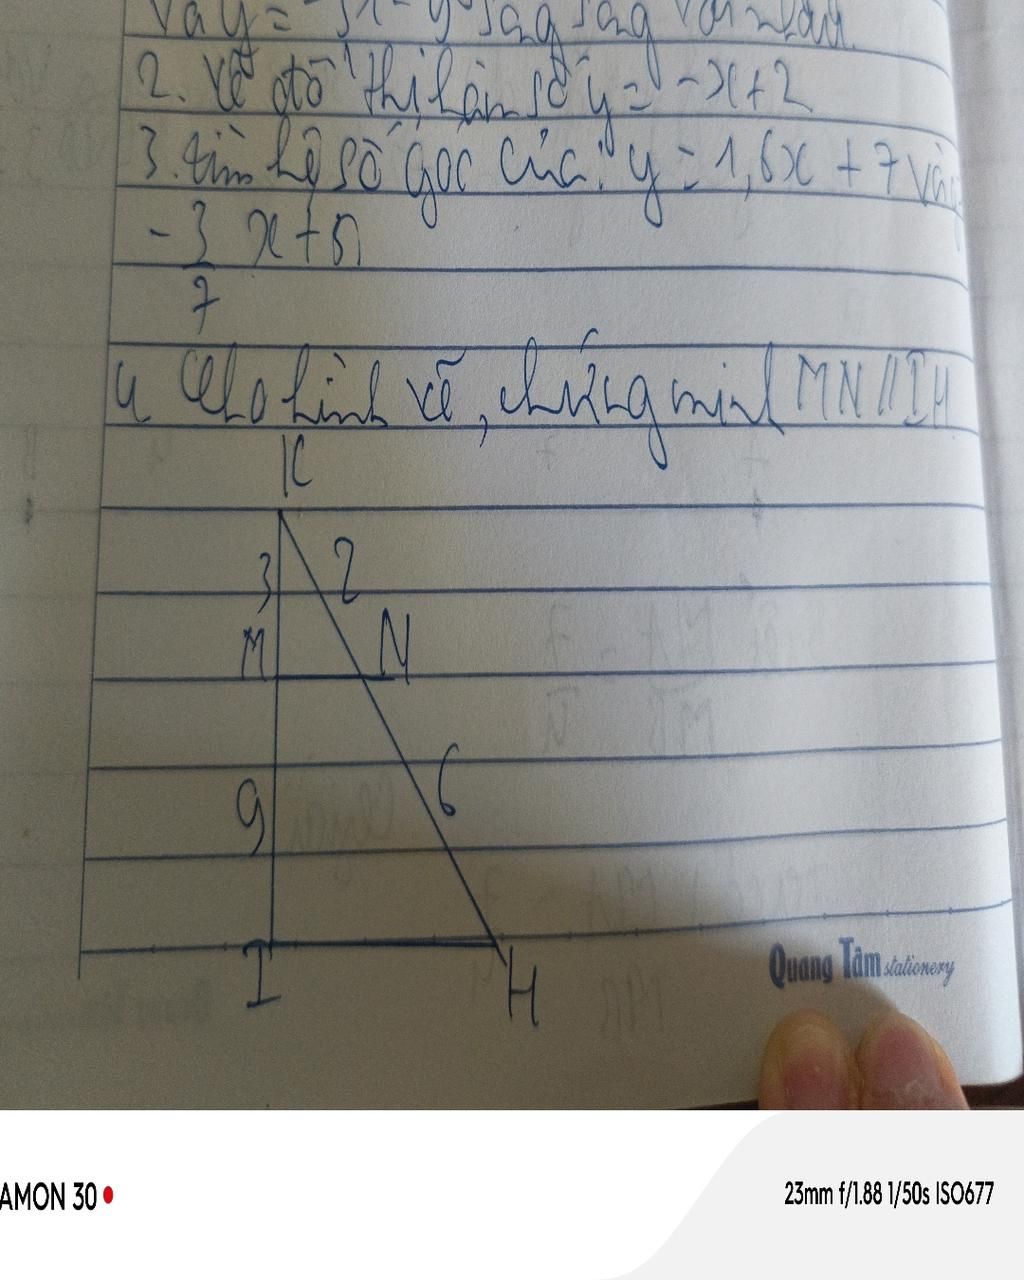 Vậy y =
2. Vẽ đồ thị hàm số y = -x+2
3. tìm hệ số góc của: y = 1,6x + 7 và
- 3/7 x + 5
4 Cho hình vẽ, chứng minh MN // IH
K
3 2
M N
9 6
I H
Quang Tâm stationery
AMON 30
23mm f/1.88 1/50s ISO677